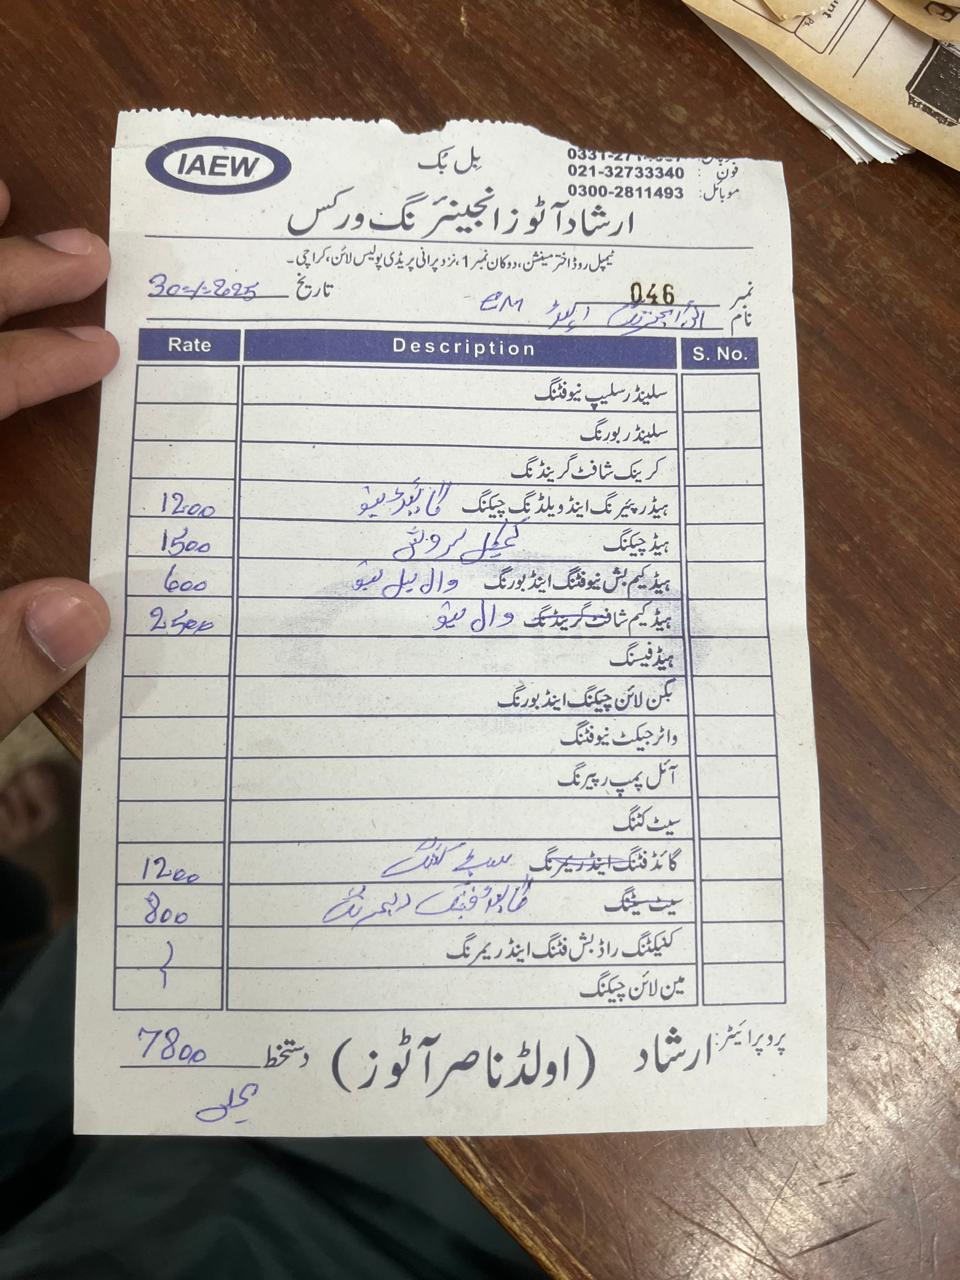 IAEW
بل بک
فون: 021-32733340
موبائل: 0300-2811493
ارشاد آٹوز انجینئرنگ ورکس
ٹیمپل روڈ اختر مینشن، دوکان نمبر 1، نزد پرانی پریڈی پولیس لائن، کراچی۔
نمبر 046 تاریخ
نام
S. No. Description Rate
سلینڈر سلیپ نیو فٹنگ
سلینڈر بورنگ
کرینک شافٹ گرینڈنگ
ہیڈ رپیئرنگ اینڈ ویلڈنگ چیکنگ گائیڈ نیو 1200
ہیڈ چیکنگ کیمیکل سروس 1500
ہیڈ کیم بش نیو فٹنگ اینڈ بورنگ وال سیل نیو 600
ہیڈ کیم شافٹ گرینڈنگ وال نیو 2500
ہیڈ فیسنگ
بکن لائن چیکنگ اینڈ بورنگ
واٹر جیکٹ نیو فٹنگ
آئل پمپ رپیرنگ
سیٹ کٹنگ
گائڈ فٹنگ اینڈ ریمرنگ سیٹ کٹنگ 1200
سیٹ سیٹنگ گائیڈ فٹنگ ریمرنگ 800
کنیکٹنگ راڈ بش فٹنگ اینڈ ریمرنگ
مین لائن چیکنگ
پروپرائیٹر: ارشاد (اولڈ ناصر آٹوز) دستخط 7800